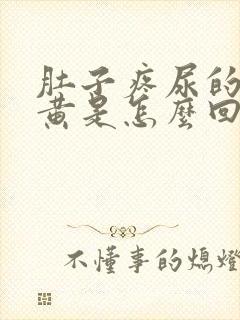 肚子疼尿的
黄是怎麼回
不懂事的熄燈